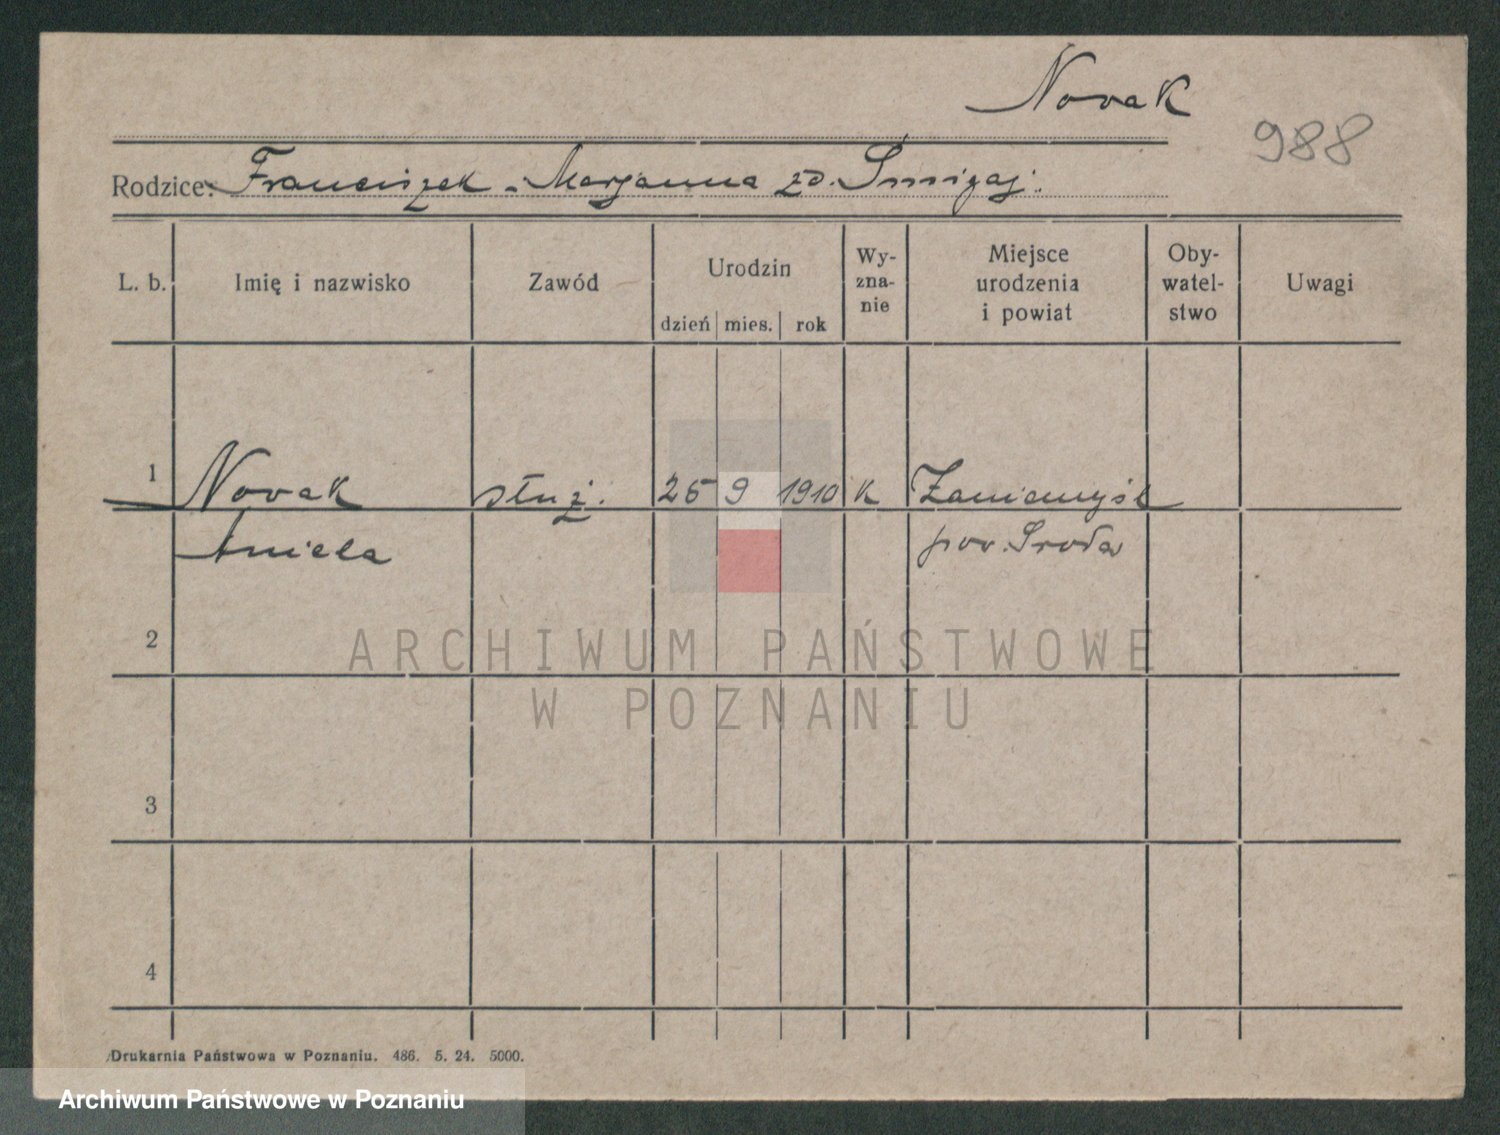 Novak
988
Rodzice: Franciszek - Marjanna zd. Śmigaj.
L. b. Imię i nazwisko Zawód Urodzin Wy-zna-nie Miejsce urodzenia i powiat Oby-watel-stwo Uwagi
dzień mies. rok
1 Novak służ. 25 9 1910 K Zaniemyśl
Aniela pow. Środa
2
ARCHIWUM PAŃSTWOWE
W POZNANIU
3
4
Drukarnia Państwowa w Poznaniu. 486. 5. 24. 5000.
Archiwum Państwowe w Poznaniu